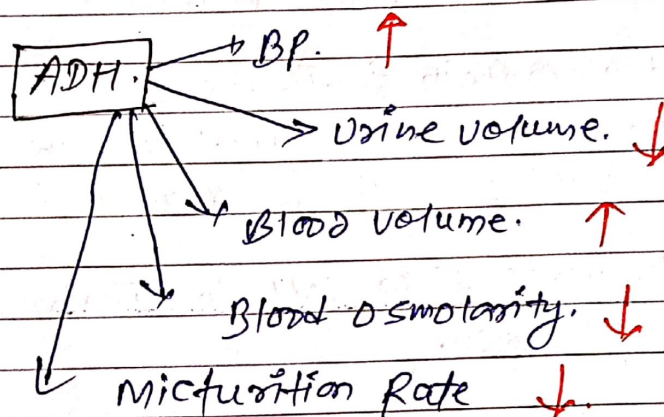 ADH.
BP. ↑
Urine volume. ↓
Blood volume. ↑
Blood osmolarity. ↓
Micturition Rate ↓.